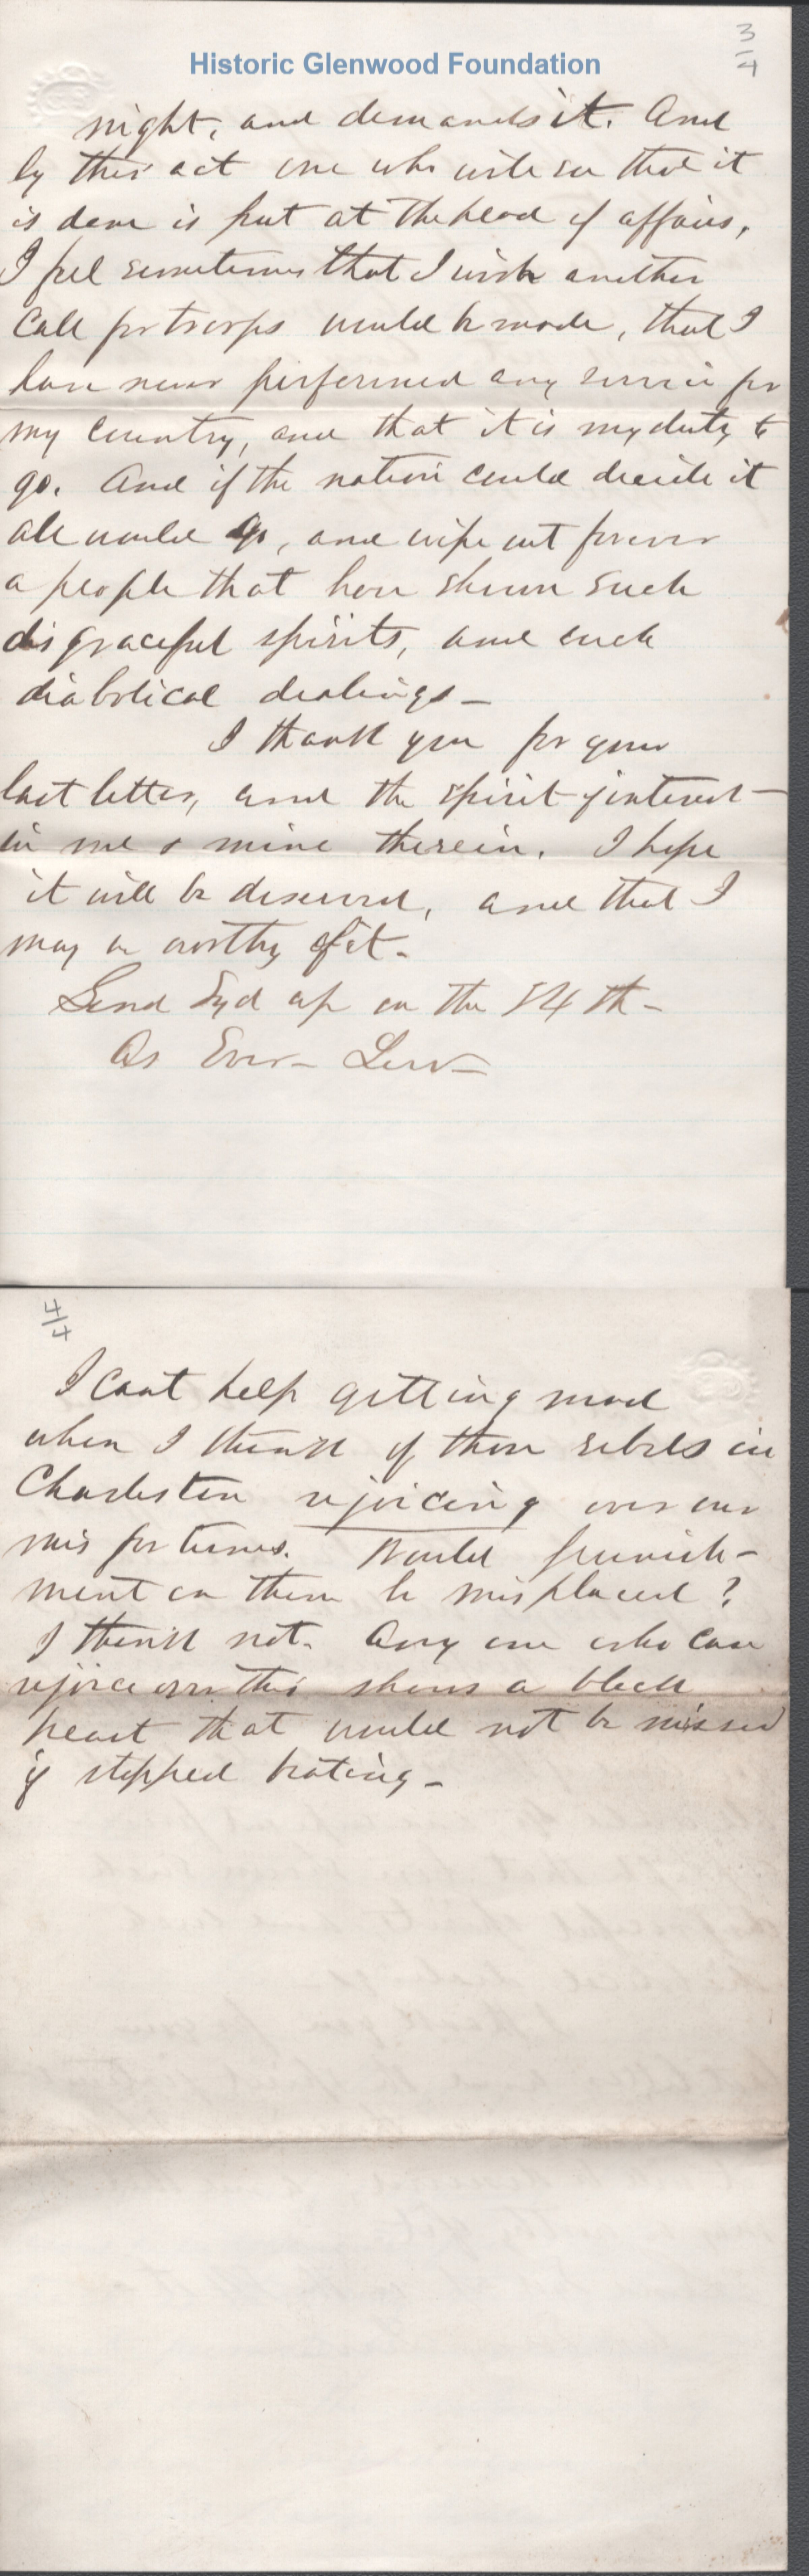 3/4
Historic Glenwood Foundation
night, and demands it. And
by this act one who will see that it
is done is put at the head of affairs,
I feel sometimes that I wish another
call for troops would be made, that I
have never performed any service for
my country, and that it is my duty to
go. And if the nation could decide it
all would go, and wipe out forever
a people that have shown such
disgraceful spirits, and such
diabolical dealings—
I thank you for your
last letter, and the spirit of interest—
in me & mine therein. I hope
it will be deserved, and that I
may be worthy of it.
Send Syd up on the 14th—
As Ever— Lew—
4/4
I cant help getting mad
when I think of those rebels in
Charleston rejoicing over our
misfortunes. Would punish-
ment on them be misplaced?
I think not. Any one who can
rejoice over this shows a black
heart that would not be missed
if stopped beating—